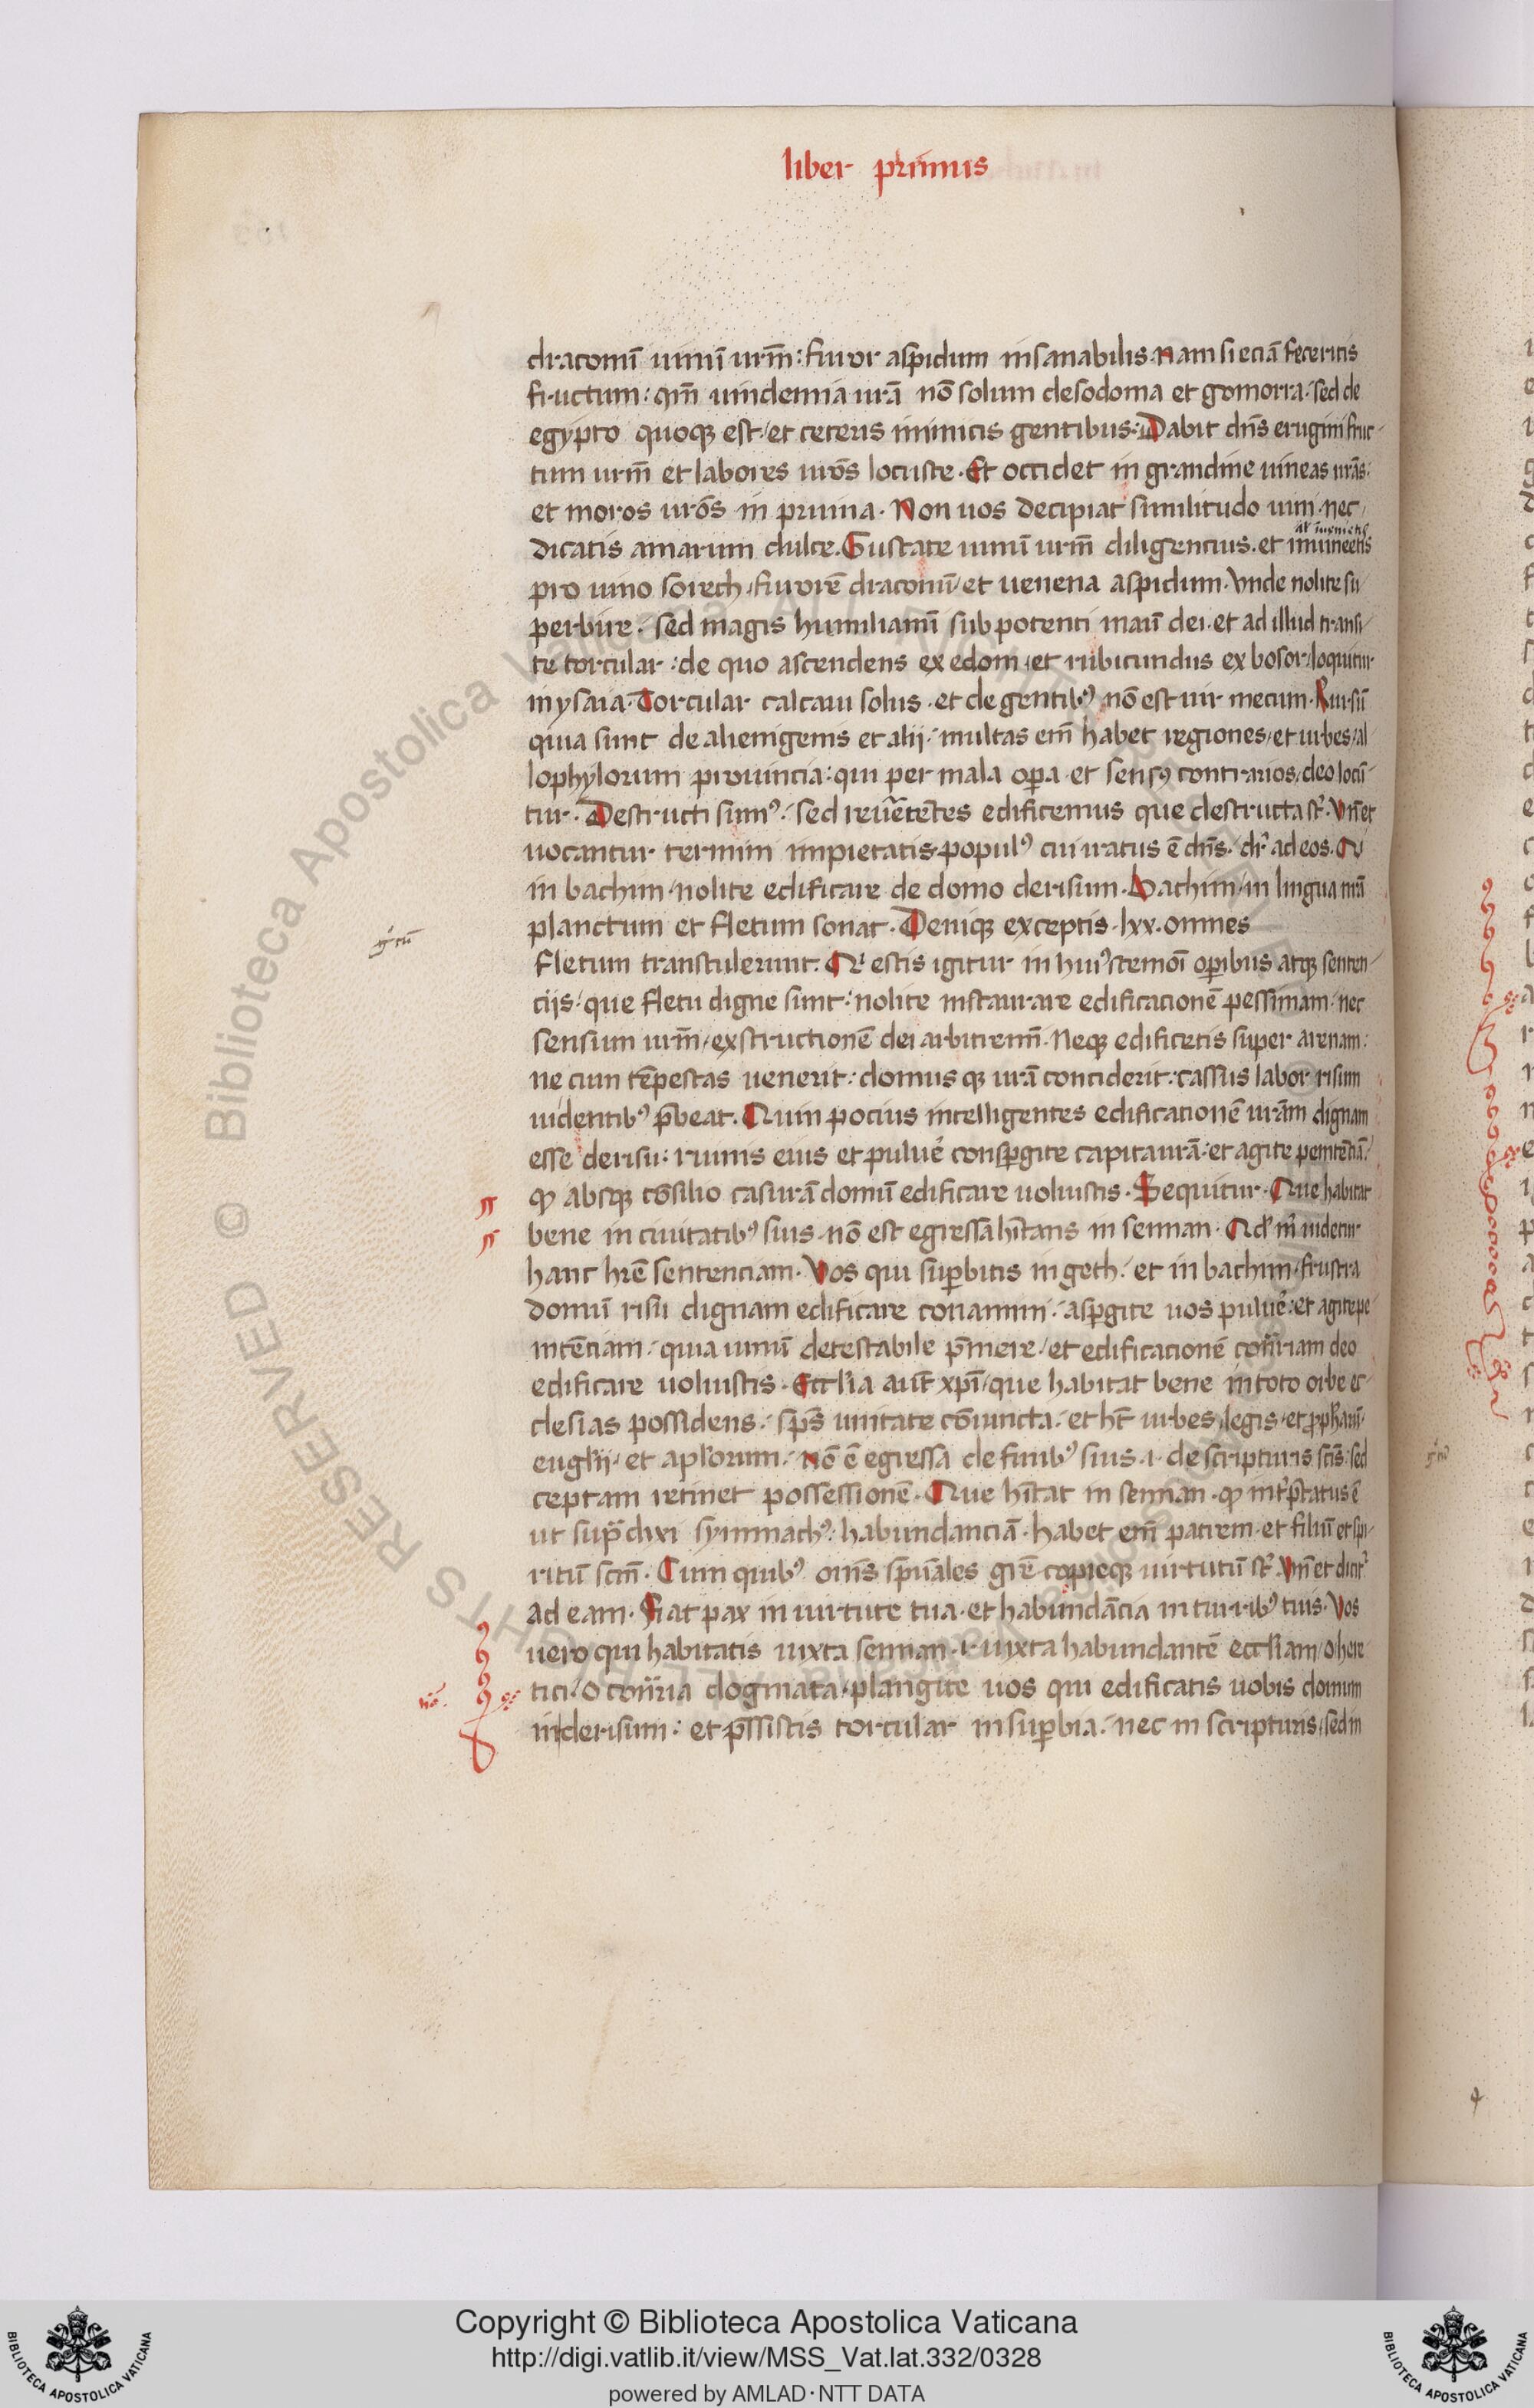 liber primus
draconū uinū urm̄: furor aspidum insanabilis. nam si eciā feceritis
fructum: qm̄ uindemia urā nō solum de sodoma et gomorra. sed de
egypto quoqꝫ est. et ceteris inimicis gentibus. Dabit dn̄s erugini fruc
tum urm̄ et labores urōs locuste. Et occidet in grandine uineas urās.
et moros urōs in pruina. Non uos decipiat similitudo uini. nec
dicatis amarum dulce. Gustate uinū urm̄ diligencius. et inuinietis
pro uino sorech. furorē draconū. et uenena aspidum. Vnde nolite su
perbire. sed magis humiliamī sub potenti manū dei. et ad illud transi
te torcular: de quo ascendens ex edom. et rubicundus ex bosor. loquitur
in ysaia. Torcular calcaui solus. et de gentibꝰ nō est uir mecum. Rursū
quia sunt de alienigenis et alii. multas em̄ habet regiones. et urbes. al
lophylorum prouincia: qui per mala oꝑa et sensꝰ contrarios. deo locū
tur. Destructi sumꝰ. sed reu̅etētes edificemus que destructa st̄. Vn̄ et
uocantur termini impietatis. populꝰ cui iratus ē dn̄s. dr̄ ad eos. Q
in bachim. nolite edificare de domo derisum. Bachim. in lingua nrā
planctum et fletum sonat. Deniqꝫ exceptis. lxx. omnes
fletum transtulerunt. Qi estis igitur in huiꝰcemōi oꝑibus atqꝫ senten
ciis. que fletu digne sunt. nolite instaurare edificationē pessimam. nec
sensum urm̄. exstructionē dei arbitrem̄. Neqꝫ edificetis super arenam:
ne cum tēpestas uenerit: domus qꝫ urā conciderit: cassus labor risum
uidentibꝰ p̄beat. Quin pocius intelligentes edificationē urām dignam
esse derisu: ruinis eius et puluē consꝑgite capita urā. et agite penitētiā.
qꝫ absqꝫ cōsilio casurā domū edificare uoluistis. Sequitur. Que habitat
bene in ciuitatibꝰ suis. nō est egressa hītans in sennan. Qd̓ m̄ uidetur
hanc hr̄e sentenciam. Vos qui suꝑbitis in geth. et in bachim. frustra
domū risu dignam edificare conamini. asꝑgite uos puluē. et agite pe
nitēciam. quia uinū detestabile p̄mere. et edificationē cōtr̄iam deo
edificare uoluistis. Eccl̓ia aut̄ xp̄i. que habitat bene in toto orbe ec
clesias possidens. sp̄s unitate cōiuncta. et ht̄ urbes. legis. et ꝓph̓arū.
eugl̓ii. et apl̓orum. nō ē egressa de finibꝰ suis. i. de scripturis scīs. sed
ceptam retinet possessionē. Que hītat in sennan. qꝫ int̓p̄tatus ē
ut sup̄ dixi symmachꝰ. habundanciā. habet em̄ patrem. et filiū et spi
ritū scm̄. Cum quibꝰ omīs sp̄uales gre̅ copieqꝫ uirtutū st̄. Vn̄ et dicit̓
ad eam. Fiat pax in uirtute tua. et habundācia in turribꝰ tuis. Vos
uero qui habitatis iuxta sennan. i. iuxta habundantē eccl̓iam. o here
tici. o cōtr̄ia dogmata. plangite uos qui edificatis uobis domum
in derisum: et p̄ssistis torcular in suꝑbia. nec in scripturis. sed in
Copyright © Biblioteca Apostolica Vaticana
http://digi.vatlib.it/view/MSS_Vat.lat.332/0328
powered by AMLAD·NTT DATA